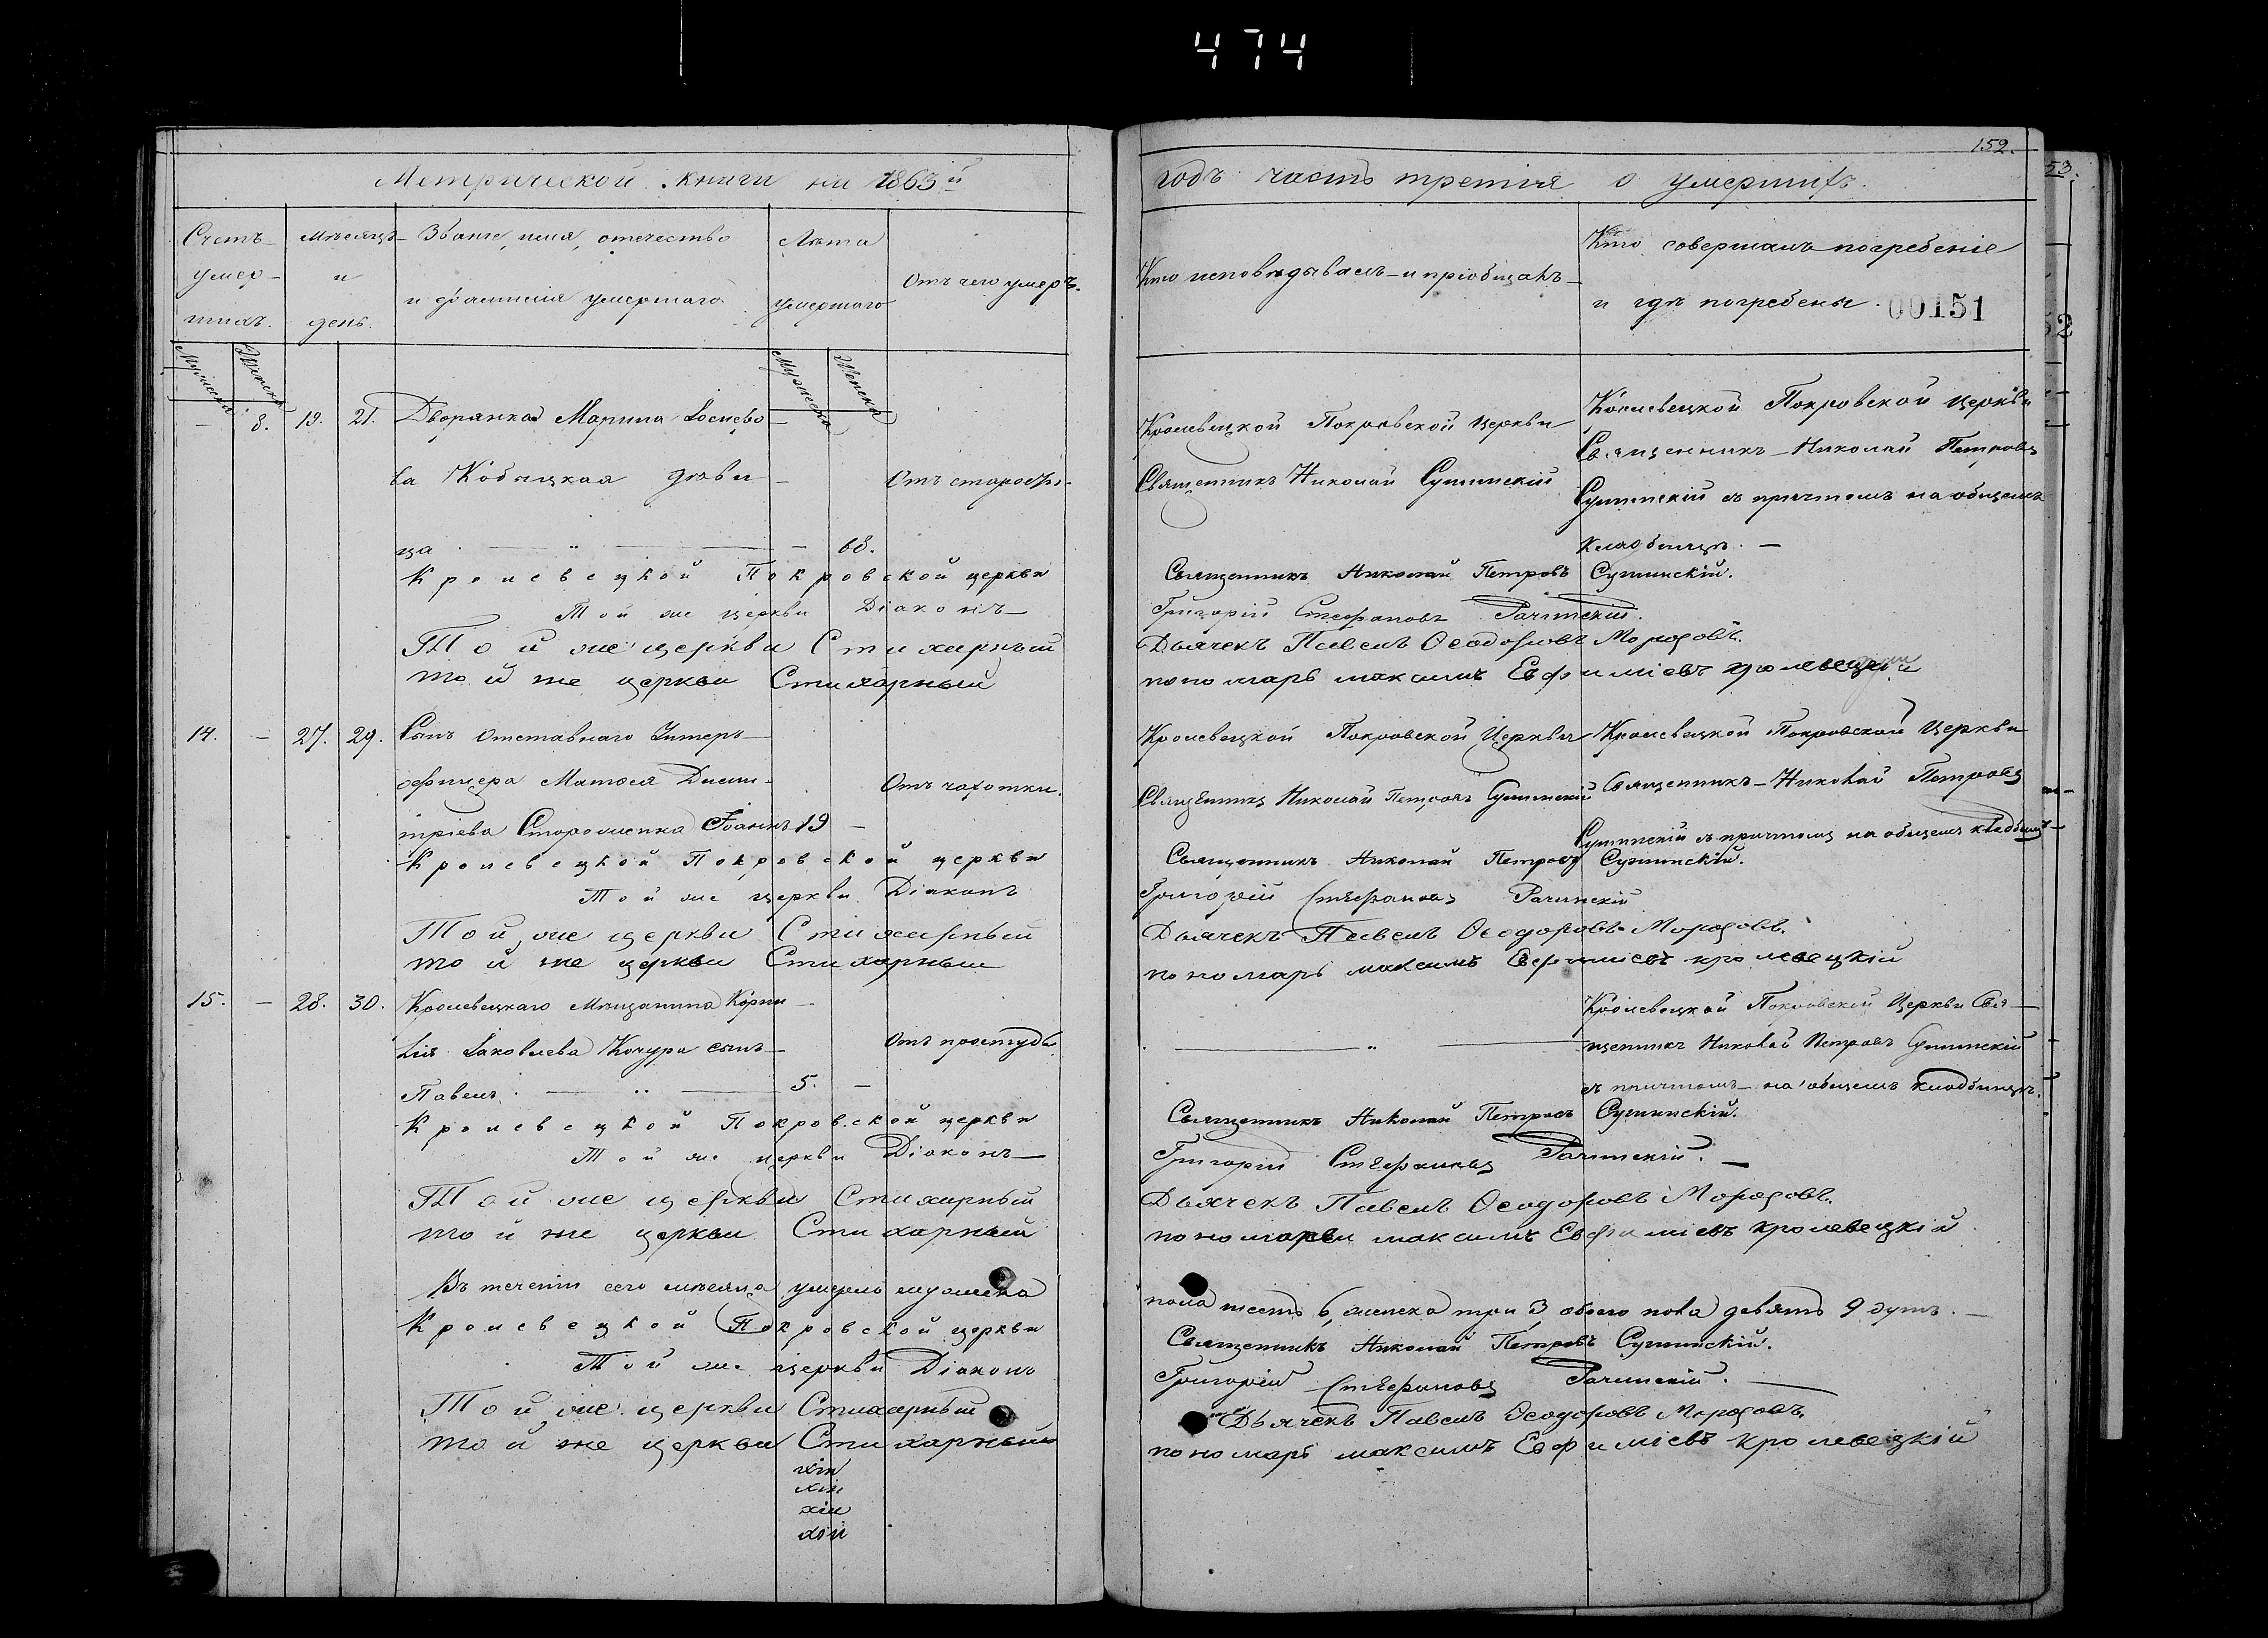 474
152.
53.
Метрической книги на 1863й
годъ часть третія о умершихъ.
Счетъ умершихъ.
Мѣсяцъ и день.
Званіе, имя, отечество и фамилія умершаго.
Лѣта умершаго
Отъ чего умеръ.
Кто исповѣдывалъ и пріобщалъ
Кто совершалъ погребеніе и гдѣ погребены.
00151
Мужеска
Женска
Мужеска
Женска
— 8. 19. 21. Дворянка Марина
ва Кобыцкая дѣви
ца — 68.
Отъ старости
Кролевецкой Покровской церкви
Священникъ Николай
Кролевецкой Покровской церкви
Священникъ Николай Петровъ
съ причтомъ на общемъ
кладбищѣ. —
Кролевецкой Покровской церкви Священникъ Николай Петровъ
Той же церкви Діаконъ Григорій Стефановъ Рачинскій.
Той же церкви Стихарный Дьячекъ Павелъ Ѳеодоровъ Морозовъ.
той же церкви Стихарный пономарь максимъ Евфиміевъ кролевецкій
14. — 27. 29. Сынъ отставнаго Унтеръ
офицера Матѳея Дими
тріева Стороженка Іоаннъ 19 —
Отъ чахотки.
Кролевецкой Покровской Церкви
Священникъ Николай Петровъ
Кролевецкой Покровской Церкви
Священникъ Николай Петровъ
съ причтомъ на общемъ кладбищѣ
Кролевецкой Покровской церкви Священникъ Николай Петровъ
Той же церкви Діаконъ Григорій Стефановъ Рачинскій
Той же церкви Стихарный Дьячекъ Павелъ Ѳеодоровъ Морозовъ.
той же церкви Стихарный пономарь максимъ Евфиміевъ кролевецкій
15. — 28. 30. Кролевецкаго мѣщанина Корни
лія Іаковлева Кочури сынъ
Павелъ. — 5. —
Отъ простуды
Кролевецкой Покровской Церкви Свя
щенникъ Николай Петровъ
съ причтомъ на общемъ кладбищѣ.
Кролевецкой Покровской церкви Священникъ Николай Петровъ
Той же церкви Діаконъ Григорій Стефановъ Рачинскій. —
Той же церкви Стихарный Дьячекъ Павелъ Ѳеодоровъ Морозовъ.
той же церкви Стихарный пономарь максимъ Евфиміевъ кролевецкій
Въ теченіи сего мѣсяца умерло мужеска пола шесть 6, женска три 3, обоего пола девять 9 душъ. —
Кролевецкой Покровской церкви Священникъ Николай Петровъ
Той же церкви Діаконъ Григорій Стефановъ Рачинскій.
Той же церкви Стихарный Дьячекъ Павелъ Ѳеодоровъ Морозовъ.
той же церкви Стихарный пономарь максимъ Евфиміевъ кролевецкій